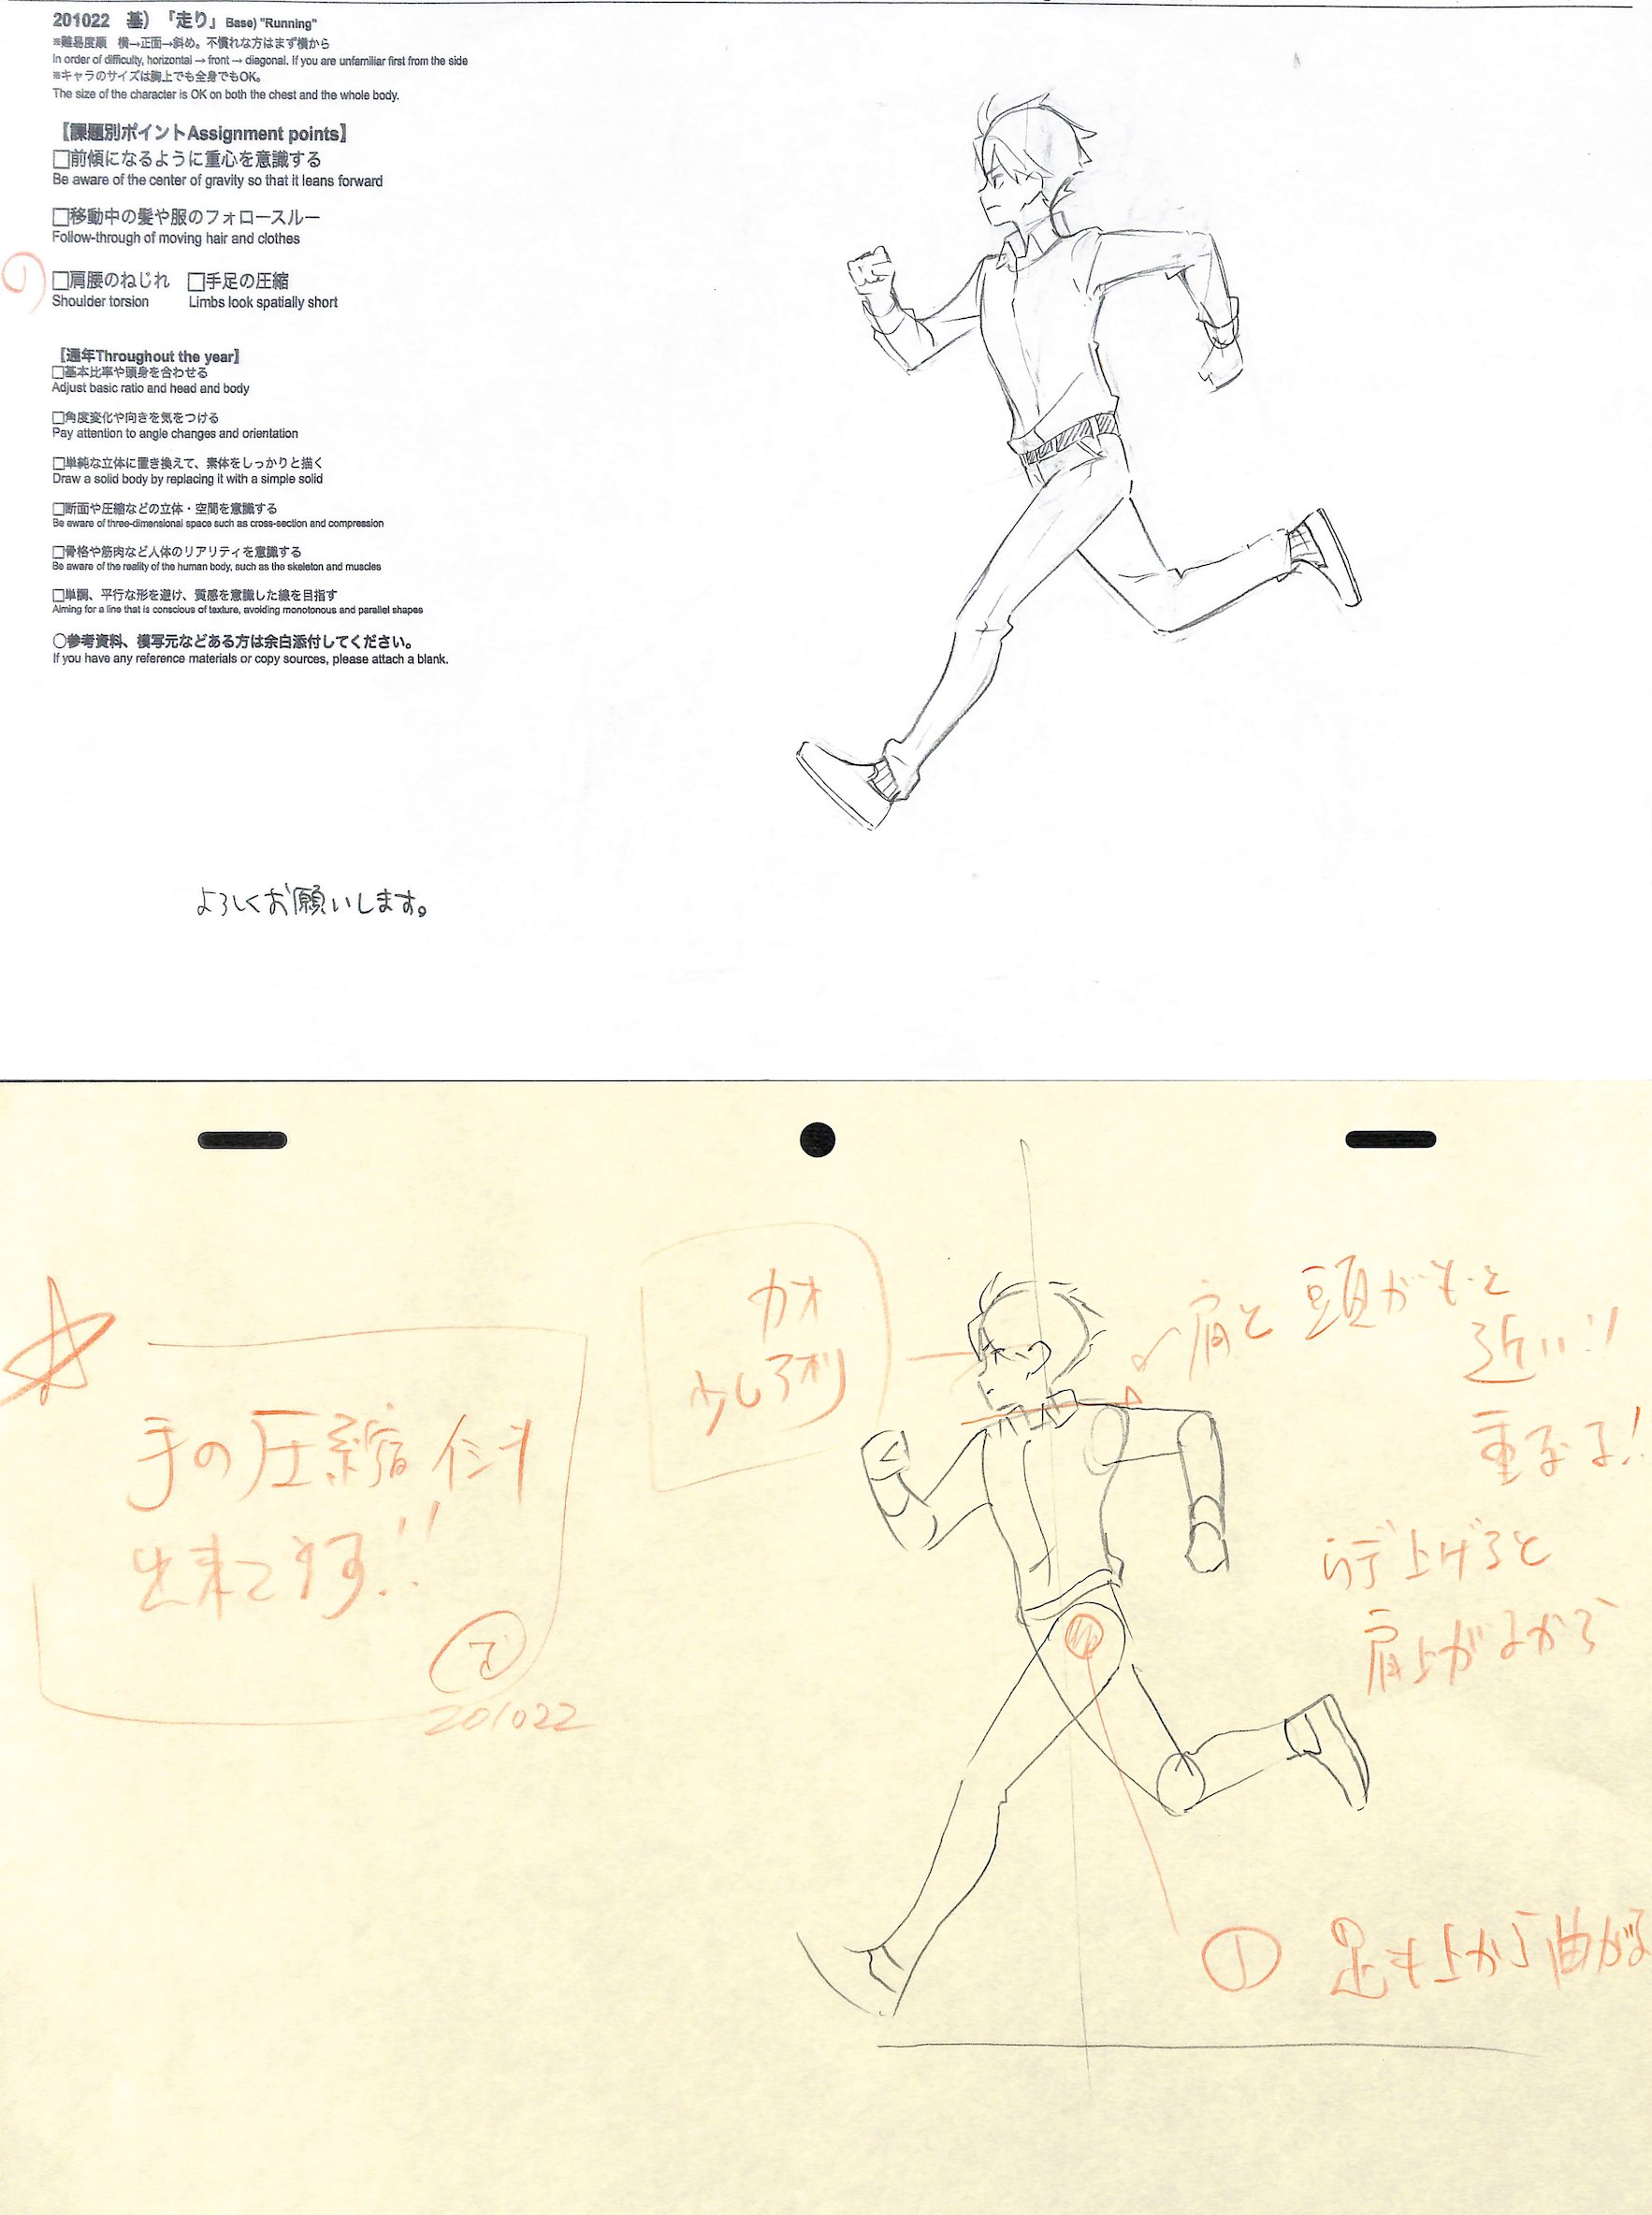 201022 基）「走り」Base) "Running"
※難易度順 横→正面→斜め。不慣れな方はまず横から
In order of difficulty, horizontal → front → diagonal. If you are unfamiliar first from the side
※キャラのサイズは胸上でも全身でもOK。
The size of the character is OK on both the chest and the whole body.
【課題別ポイントAssignment points】
□前傾になるように重心を意識する
Be aware of the center of gravity so that it leans forward
□移動中の髪や服のフォロースルー
Follow-through of moving hair and clothes
□肩腰のねじれ □手足の圧縮
Shoulder torsion Limbs look spatially short
【通年Throughout the year】
□基本比率や頭身を合わせる
Adjust basic ratio and head and body
□角度変化や向きを気をつける
Pay attention to angle changes and orientation
□単純な立体に置き換えて、素体をしっかりと描く
Draw a solid body by replacing it with a simple solid
□断面や圧縮などの立体・空間を意識する
Be aware of three-dimensional space such as cross-section and compression
□骨格や筋肉など人体のリアリティを意識する
Be aware of the reality of the human body, such as the skeleton and muscles
□単調、平行な形を避け、質感を意識した線を目指す
Aiming for a line that is conscious of texture, avoiding monotonous and parallel shapes
○参考資料、模写元などある方は余白添付してください。
If you have any reference materials or copy sources, please attach a blank.
よろしくお願いします。
カオ
少しフカン
肩と頭がもっと
近い!!
重なる!
手の圧縮
出来てます!!
201022
上げると
肩上がるから
① 足も上から曲がる